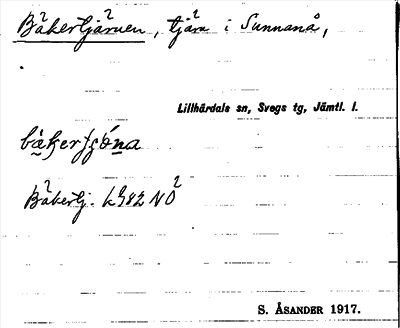 Bäkertjärnen, tjärn i Sunnanå,
Lillhärdals sn, Svegs tg, Jämtl. l.
Bäkertj. k 982 NÖ
S. ÅSANDER 1917.